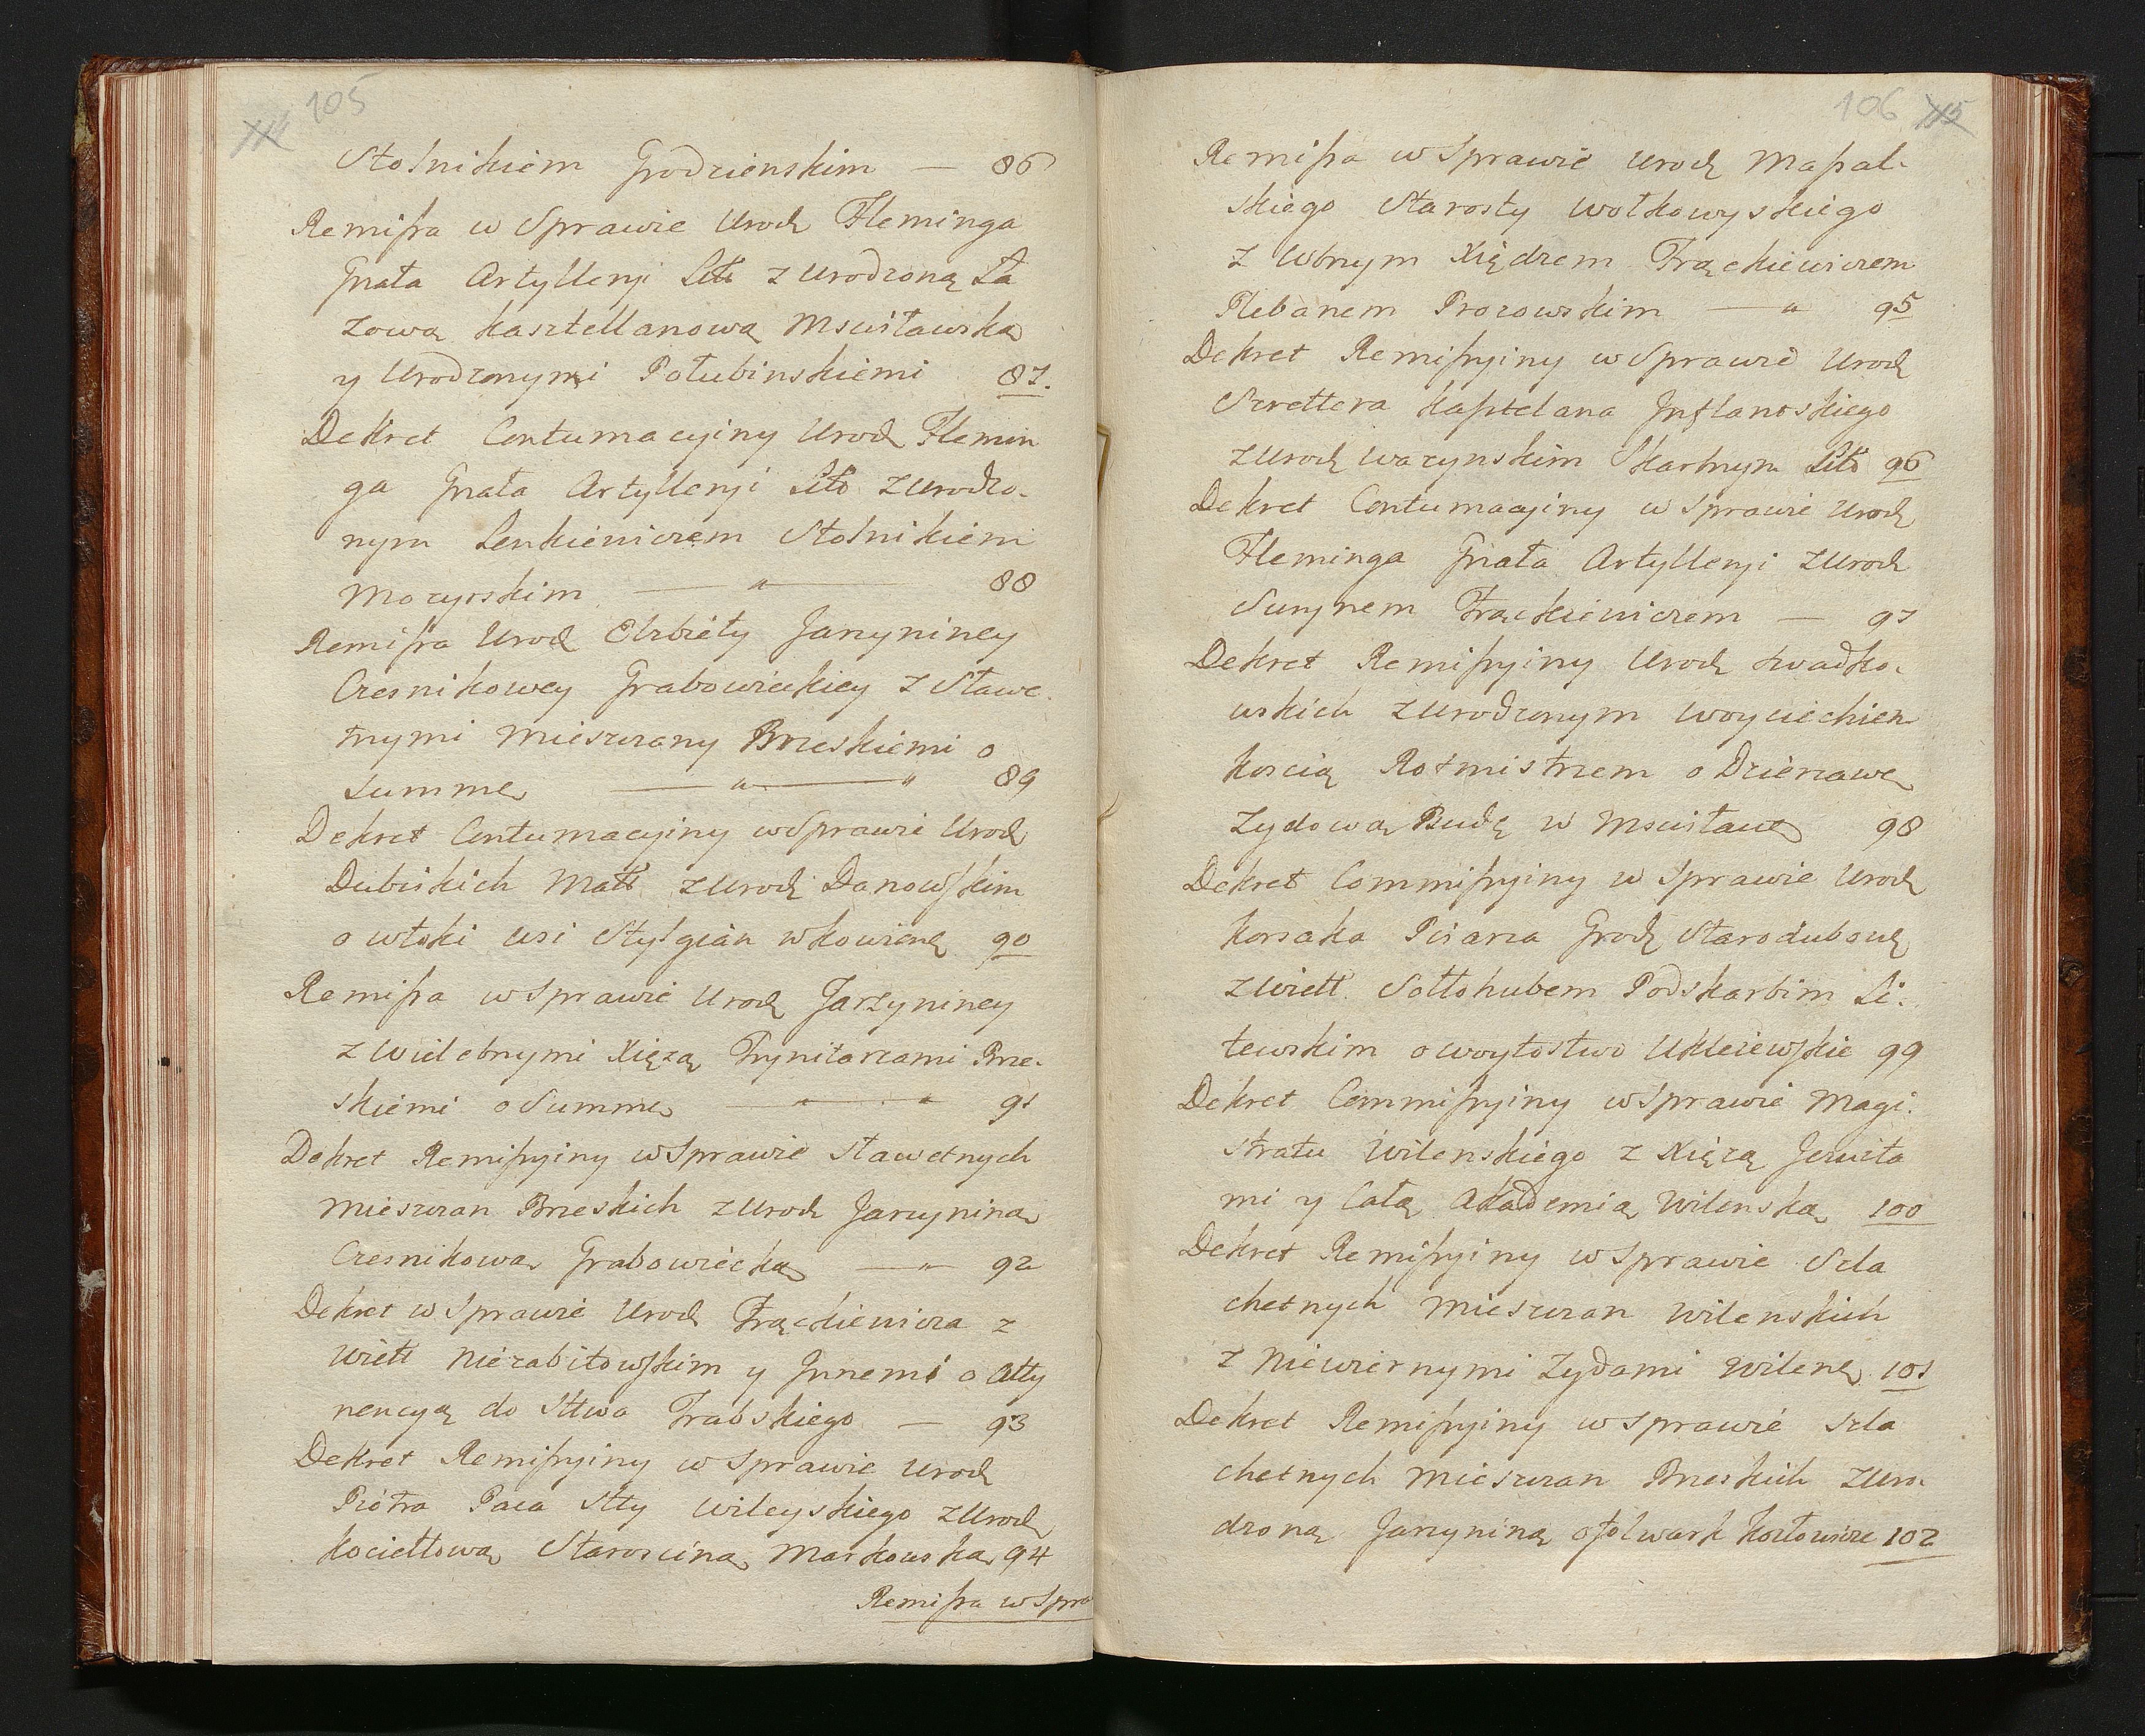 105
Stolnikiem Grodzienskim — 86
Remissa w Sprawie Urodz Fleminga
Gnała Artylleryi Litt z Urodzoną Ła
zową kasztellanową Mscisławską
y Urodzonymi Połubinskiemi 87.
Dekret Contumacyiny Urodz Flemin
ga Gnała Artylleryi Litt z Urodzo-
nym Lenkiewiczem Stolnikiem
Mozyrskim — " — 88
Remissa Urodz Elzbiety Jarzyniney
Czesnikowey Grabowieckiey z Sławe-
tnymi Mieszczany Brzeskiemi o
Summę — " — " 89
Dekret Contumacyiny w Sprawie Urodz
Dubiskich Małł z Urodz Danowskim
o włoki wsi Stylgian w kowiensę 90
Remissa w Sprawie Urodz Jarzyniney
z Wielebnymi Xięzą Trynitarzami Brze-
skiemi o Summę — " — " 91
Dekret Remissyiny w Sprawie sławetnych
Mieszczan Brzeskich z Urodz Jarzyniną
Czesnikową Grabowiecką — " — 92
Dekret w Sprawie Urodz Frąckiewicza z
Wiełł Niezabitowskim y Jnnemi o Atty
nencyą do Sttwa Trabskiego — 93
Dekret Remissyiny w Sprawie Urodz
Piotra Paca Stty Wileyskiego z Urodz
kociełłową Starościną Markowską 94
Remissa w Spra
106
Remissa w Sprawie Urodz Massal-
skiego Starosty Wołkowyskiego
z Wbnym Xiędzem Frąckiewiczem
Plebanem Prozowskim — " 95
Dekret Remissyiny w Sprawie Urodz
Szrettera kasztelana Jnflantskiego
z Urodz Wazynskim Skarbnym Litt 96
Dekret Contumacyiny w Sprawie Urodz
Fleminga Gnała Artylleryi z Urodz
Surynem Frąckiewiczem — 97
Dekret Remissyiny Urodz kwadko-
wskich z Urodzonym Woyciechem
koscią Rotmistrzem o Dzierzawę
Zydową Budę w Mscisławę 98
Dekret Commissyiny w Sprawie Urodz
korsaka Pisarza Grodz Starodubowę
z Wiełł. Sołłohubem Podskarbim Li-
tewskim o woytostwo Ukleiewskie 99
Dekret Commissyiny w Sprawie Magi-
stratu Wilenskiego z Xięzą Jezuita
mi y Całą Akademią Wilenską 100
Dekret Remissyiny w Sprawie Szla
chetnych Mieszczan Wilenskich
z Niewiernymi Zydami Wilenę 101
Dekret Remissyiny w Sprawie szla
chetnych Mieszczan Brzeskich z Uro-
dzoną Jarzyniną o folwark kozłowicze 102